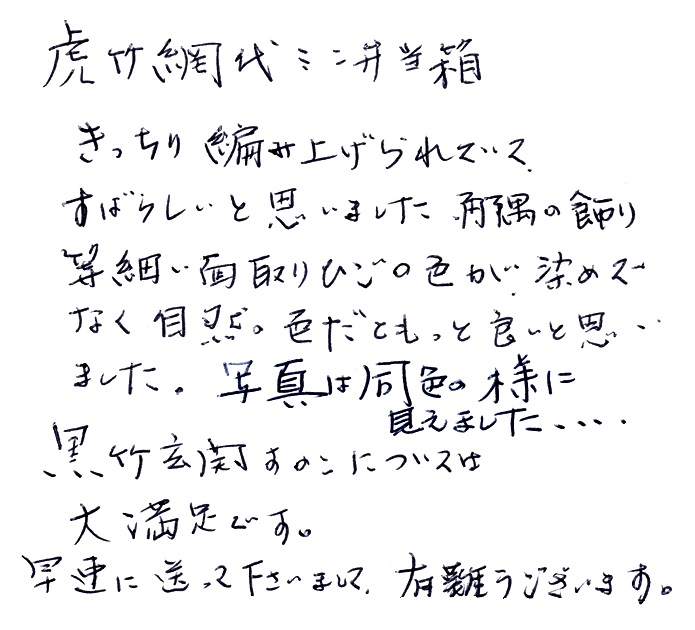 虎竹網代ミニ弁当箱
きっちり編み上げられていて、
すばらしいと思いました 四隅の飾り
等細い面取りひごの色が、染めで
なく自然の色だともっと良いと思い
ました。写真は同色の様に
見えました・・・・
黒竹玄関すのこについては
大満足です。
早速に送って下さいまして、有難うございます。